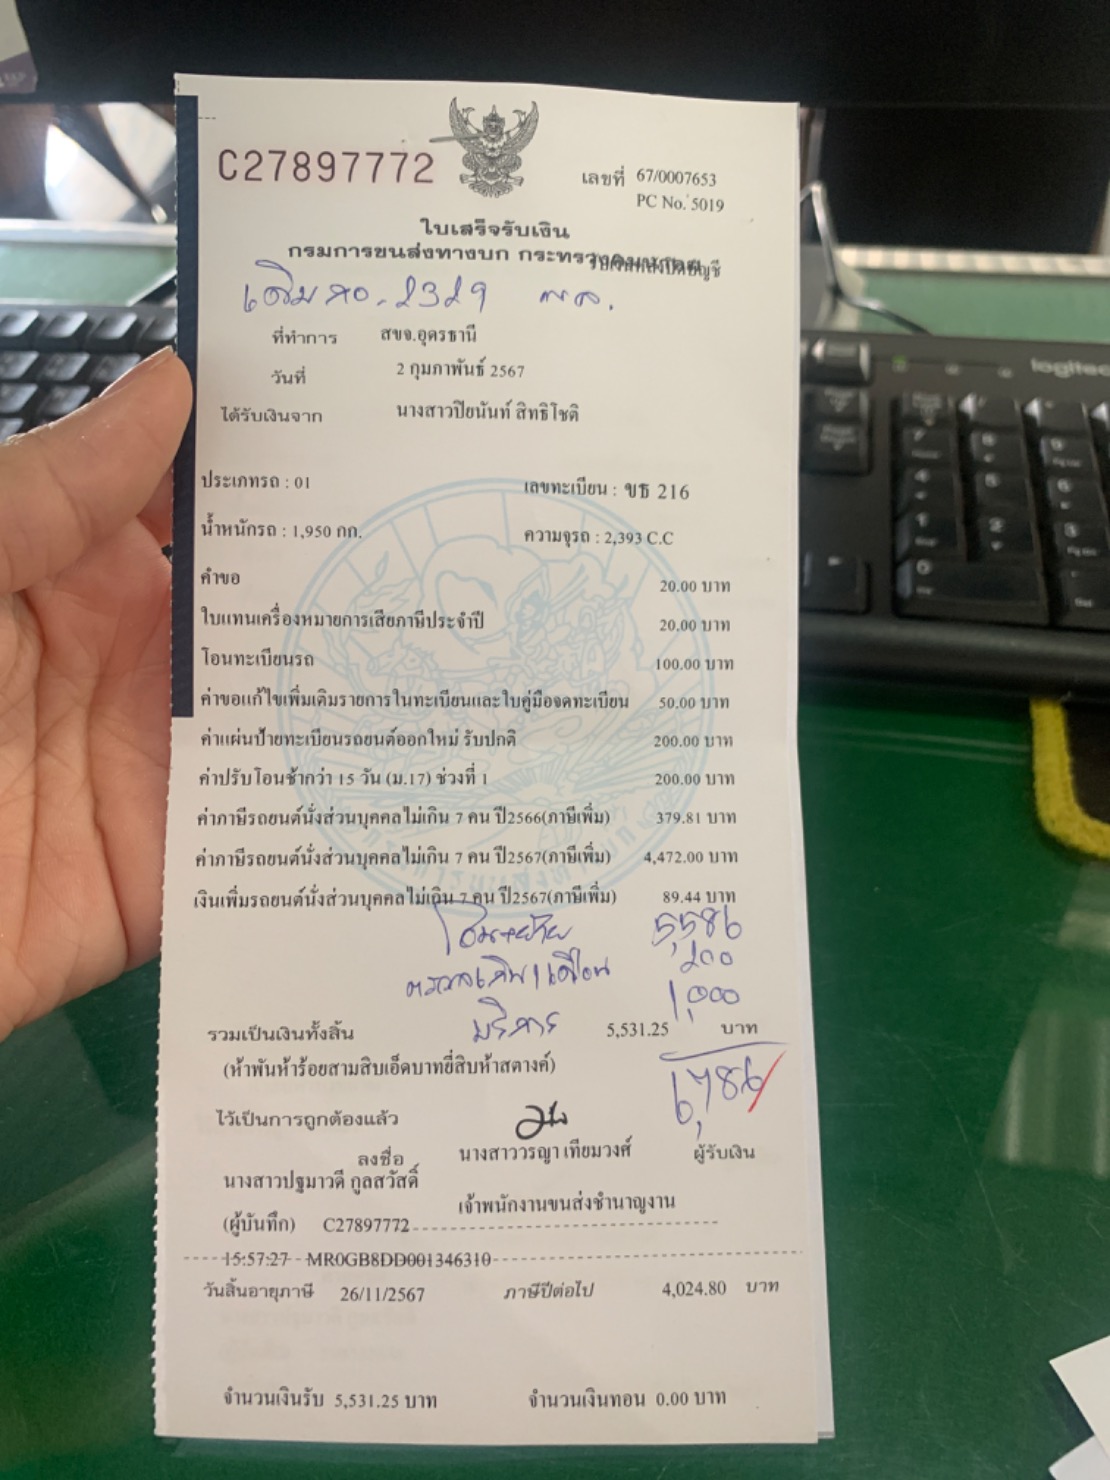 C27897772
เลขที่ 67/0007653
PC No. 5019
ใบเสร็จรับเงิน
กรมการขนส่งทางบก กระทรวงคมนาคม
เดิม กอ-2329
ที่ทำการ สขจ.อุดรธานี
วันที่ 2 กุมภาพันธ์ 2567
ได้รับเงินจาก นางสาวปิยนันท์ สิทธิโชติ
ประเภทรถ : 01 เลขทะเบียน : ขธ 216
น้ำหนักรถ : 1,950 กก. ความจุรถ : 2,393 C.C
คำขอ 20.00 บาท
ใบแทนเครื่องหมายการเสียภาษีประจำปี 20.00 บาท
โอนทะเบียนรถ 100.00 บาท
ค่าขอแก้ไขเพิ่มเติมรายการในทะเบียนและใบคู่มือจดทะเบียน 50.00 บาท
ค่าแผ่นป้ายทะเบียนรถยนต์ออกใหม่ รับปกติ 200.00 บาท
ค่าปรับโอนช้ากว่า 15 วัน (ม.17) ช่วงที่ 1 200.00 บาท
ค่าภาษีรถยนต์นั่งส่วนบุคคลไม่เกิน 7 คน ปี2566(ภาษีเพิ่ม) 379.81 บาท
ค่าภาษีรถยนต์นั่งส่วนบุคคลไม่เกิน 7 คน ปี2567(ภาษีเพิ่ม) 4,472.00 บาท
เงินเพิ่มรถยนต์นั่งส่วนบุคคลไม่เกิน 7 คน ปี2567(ภาษีเพิ่ม) 89.44 บาท
โอน+ย้าย 5,586
200
บริการ 1,000
รวมเป็นเงินทั้งสิ้น 5,531.25 บาท
(ห้าพันห้าร้อยสามสิบเอ็ดบาทยี่สิบห้าสตางค์)
6,786
ไว้เป็นการถูกต้องแล้ว
ลงชื่อ นางสาววรญา เทียมวงศ์ ผู้รับเงิน
นางสาวปฐมาวดี กูลสวัสดิ์
เจ้าพนักงานขนส่งชำนาญงาน
(ผู้บันทึก) C27897772
15:57:27 MR0GB8DD001346310
วันสิ้นอายุภาษี 26/11/2567 ภาษีปีต่อไป 4,024.80 บาท
จำนวนเงินรับ 5,531.25 บาท จำนวนเงินทอน 0.00 บาท
logitech